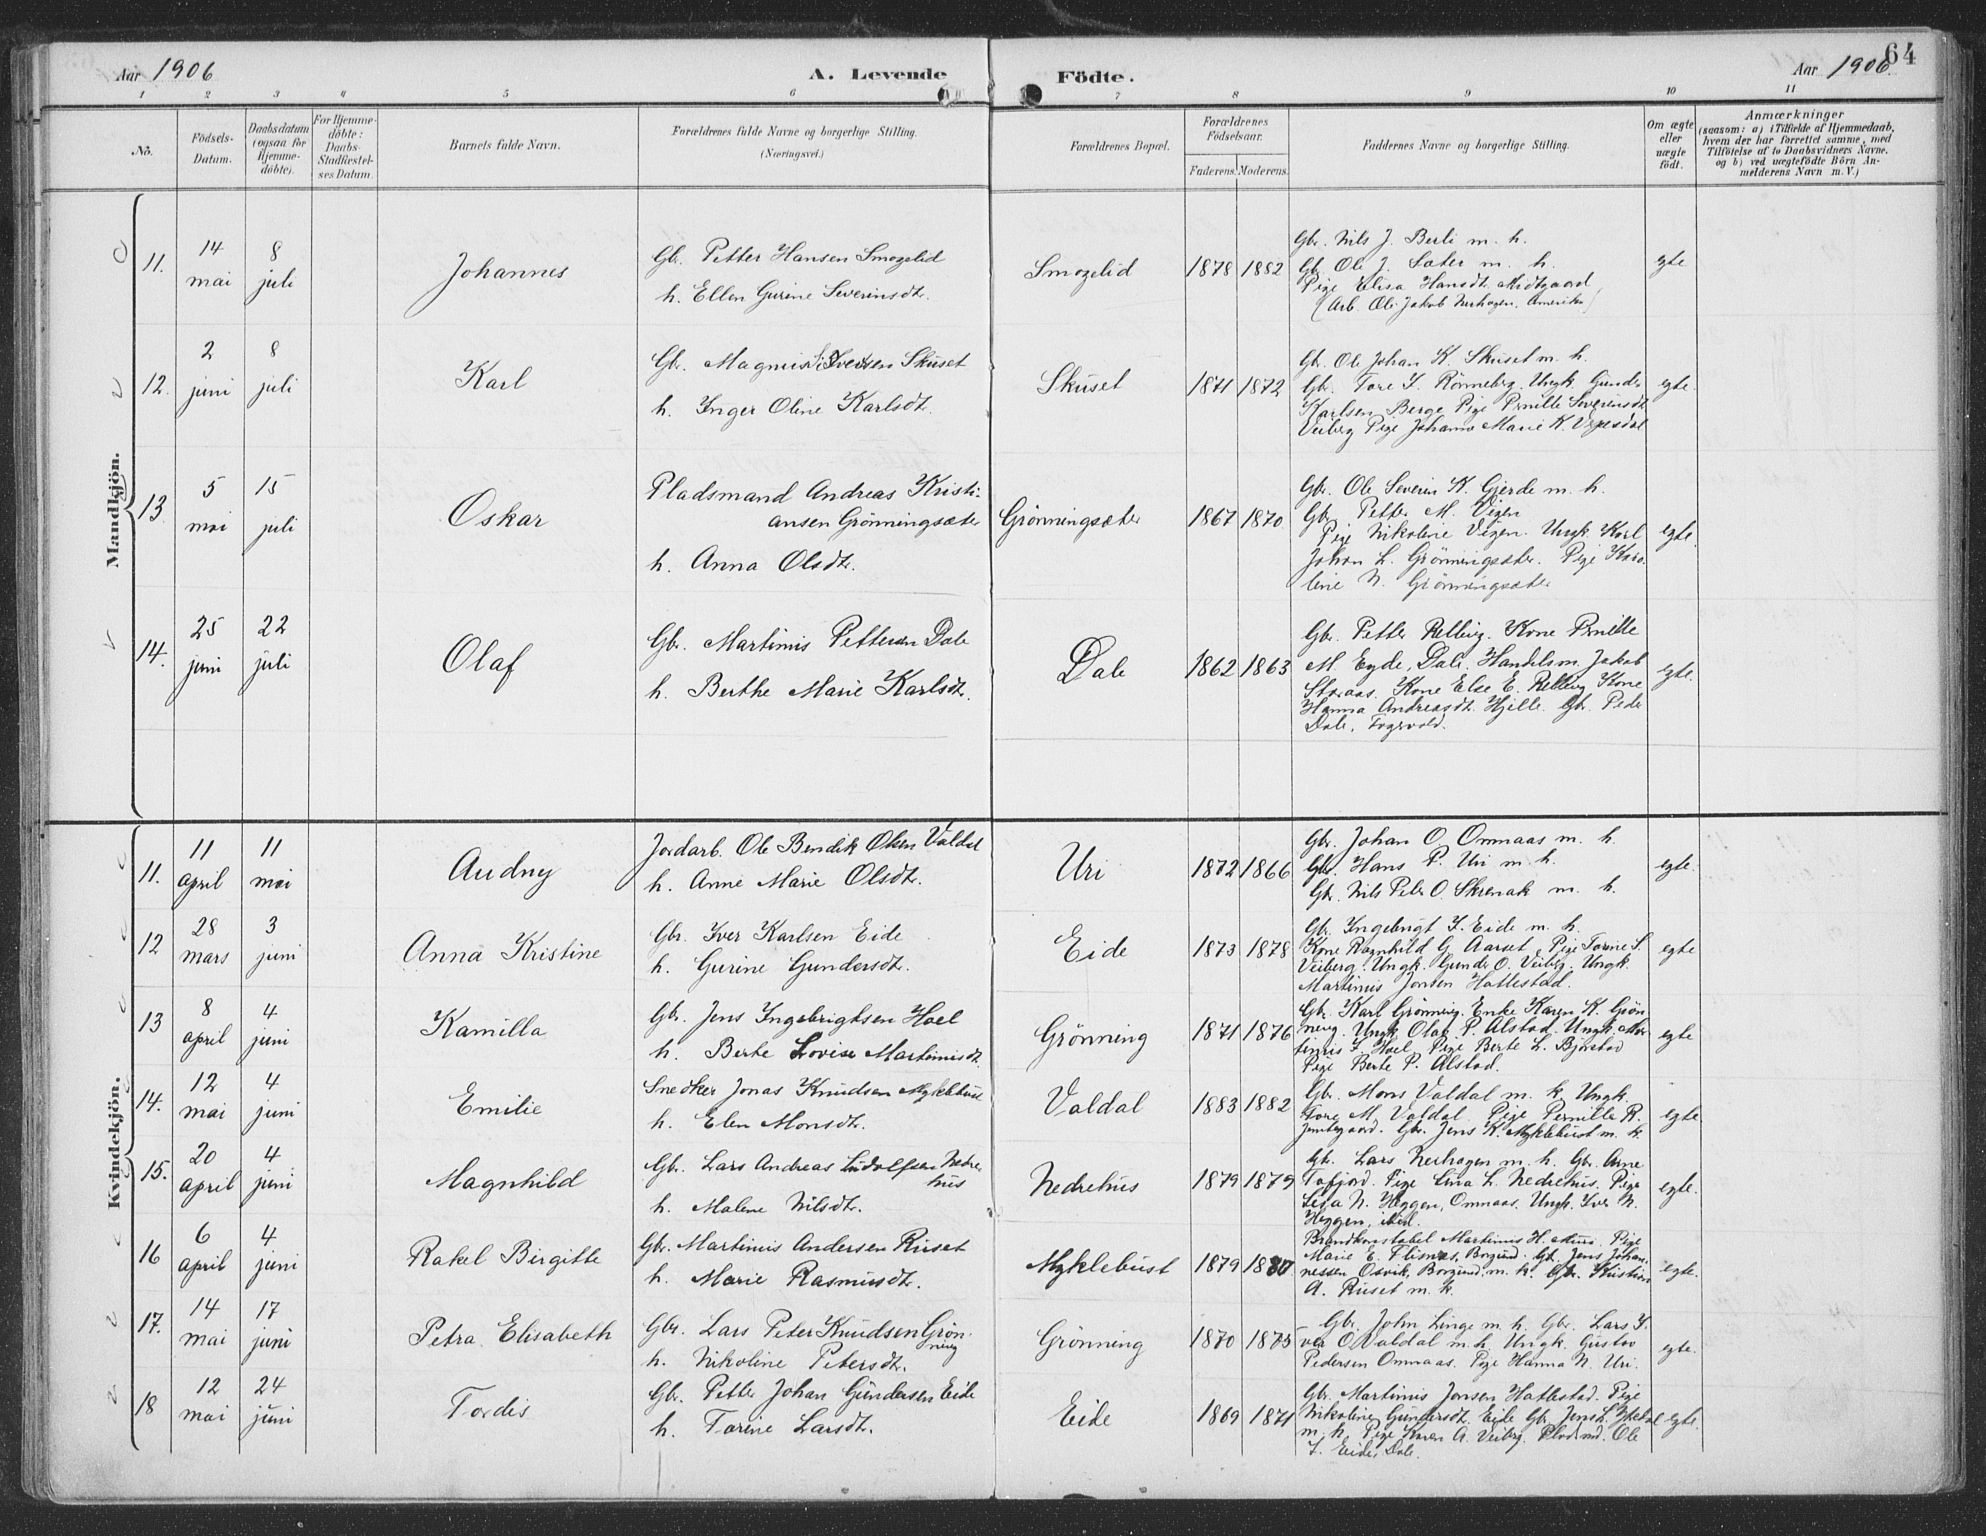 64
Aar 1906
A. Levende
Födte.
Aar 1906
1 2 3 4 5 6 7 8 9 10 11
No.
Födsels-
Datum.
Daabsdatum
(ogsaa for
Hjemme-
döbte).
For Hjemme-
döbte:
Daabs-
Stadfæstel-
ses Datum.
Barnets fulde Navn.
Forældrenes fulde Navne og borgerlige Stilling.
(Næringsvei.)
Forældrenes Bopæl.
Forældrenes
Födselsaar.
Faderens. Moderens.
Faddernes Navne og borgerlige Stilling.
Om ægte
eller
uægte
födt.
Anmærkninger
(saasom: a) i Tilfælde af Hjemmedaab,
hvem der har forrettet samme, med
Tilföielse af to Daabsvidners Navne,
og b) ved uægtefödte Börn An-
melderens Navn m. V.)
Mandkjön.
11. 14 mai 8 juli
Johannes
Gbr. Petter Hansen Smogelid
h. Ellen Gurine Severinsdtr.
Smogelid 1878 1882
Gbr. Nils J. Berli m. h.
Gbr. Ole J. Sæter m. h.
Pige Elisa Hansdtr. Midtgaard
(Arb. Ole Jakob Nerhagen, Amerika)
egte
12. 2 juni 8 juli
Karl
Gbr. Magnus Skuset
h. Inger Oline Karlsdtr.
Skuset 1871 1872
Gbr. Ole Johan K Skuset m. h.
Gbr. Tore I. Rönneberg. Ungk. Gunder
Karlsen Berge Pige Pernille Severinsdtr
Veiberg Pige Johanne Marie K.
egte.
13. 5 mai 15 juli
Oskar
Pladsmand Andreas Kristi-
ansen Grönningsæter
h. Anna Olsdtr.
Grönningsæter 1867 1870
Gbr. Ole Severin K. Gjerde m. h.
Gbr. Petter M. Vigen
Pige Nikoline Vigen. Ungk. Karl
Johan L. Grönningsæter. Pige Karo-
line N. Grönningsæter
egte.
14. 25 juni 22 juli
Olaf
Gbr. Martinus Pettersen Dale
h. Berthe Marie Karlsdtr.
Dale 1862 1863
Gbr. Petter Relling. Kone Pernille
M. Eyde, Dale. Handelsm. Jakob
Storaas. Kone Else E. Relling Kone
Hanna Andreasdtr. Hjelle. Gbr. Peder
Dale, Fogrvold.
egte.
Kvindekjön.
11. 11 april 11 mai
Audny
Jordarb. Ole Bendik Olsen Valdal
h. Anne Marie Olsdtr.
Uri 1872 1866
Gbr. Johan O. Ommaas m. h.
Gbr. Hans P. Uri m. h.
Gbr. Nils Peter O. Skrenak m. h.
egte.
12 28 mars 3 juni
Anna Kristine
Gbr. Iver Karlsen Eide
h. Gurine Gundersdtr.
Eide 1873 1878
Gbr. Ingebrigt I. Eide m. h.
Kone Ragnhild G. Aarset, Pige Torine S.
Veiberg. Ungk. Gunder O. Veiberg. Ungk.
Martinus Jonsen Hattestad.
egte
13 8 april 4 juni
Kamilla
Gbr. Jens Ingebrigtsen Hoel
h. Berte Lovise Martinusdt.
Grönning 1871 1876
Gbr. Karl Grönning. Enke Karen K. Grön-
ning. Ungk. Olav P. Alstad. Ungk. Mar-
tinus I. Hoel. Pige Berte L. Bjorstad
Pige Berte P. Alstad.
egte
14. 12 mai 4 juni
Emilie
Snedker Jonas Knudsen Myklebust
h. Elen Monsdtr.
Valdal 1883 1882
Gbr. Mons Valdal m. k. Ungk.
Tore M. Valdal Pige Pernille R.
Jemtegaard. Gbr. Jens K. Myklebust m. k.
egte.
15. 20 april 4 juni
Magnhild
Gbr. Lars Andreas Ludolfsen Nedre-
hus
h. Malene Nilsdtr.
Nedrehus 1879 1879
Gbr. Lars Nerhagen m. h. Gbr. Arne
Tafjord. Pige Lina L. Nedrehus. Pige
Lisa N. Heggen, Ommaas. Ungk. Iver N.
Heggen, ibid.
egte.
16 6 april 4 juni
Rakel Birgitte
Gbr. Martinus Andersen Ruset
h. Marie Rasmusdtr.
Myklebust 1879 1880
Brandkonstabel Martinus H. Pige
Marie E. Flisnes, Borgund. Gbr. Jens Johan-
nessen Osvik, Borgund, m. k. Gbr. Kristian
A. Ruset m. k.
egte.
17. 14 mai 17 juni
Petra Elisabeth
Gbr. Lars Peter Knudsen Grön-
ning
h. Nikoline Petersdtr.
Grönning 1870 1875
Gbr. John Linge m. h. Gbr. Lars I-
ver O. Valdal m. h. Ungk. Gustav
Pedersen Ommaas. Pige Hanna N. Uri.
egte.
18 12 mai 24 juni
Tordis
Gbr. Petter Johan Gundersen Eide
h. Torine Larsdtr.
Eide 1869 1871
Gbr. Martinus Jonsen Hattestad. Pige
Nikoline Gundersdtr. Eide Gbr. Jens L.
m. k. Pige Karen A. Veiberg. Pladsmd. Ole
I. Eide, Dale.
egte.